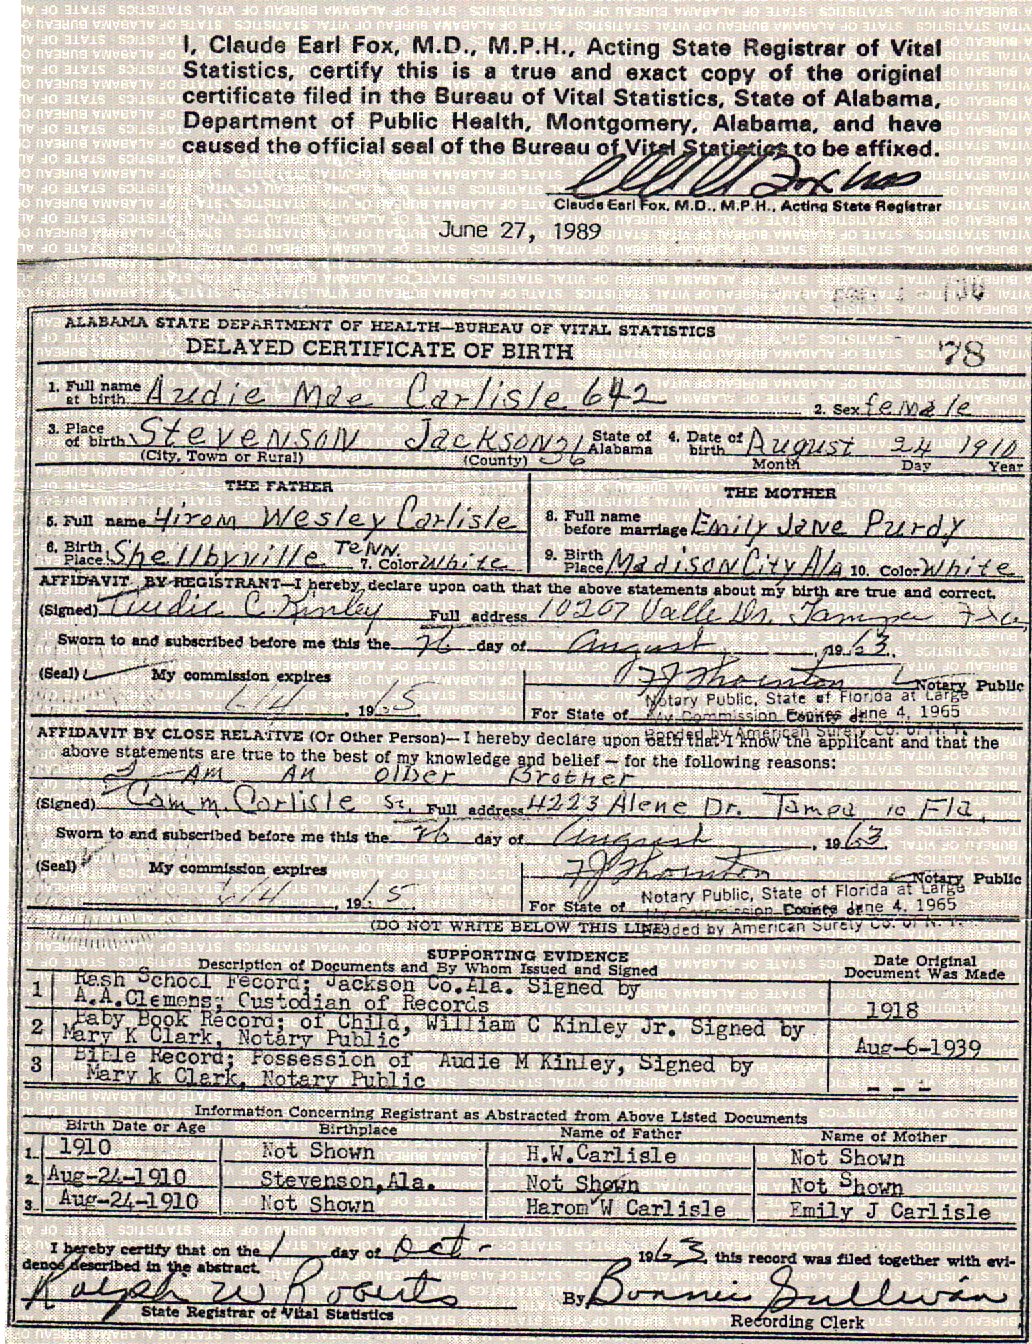 I, Claude Earl Fox, M.D., M.P.H., Acting State Registrar of Vital
Statistics, certify this is a true and exact copy of the original
certificate filed in the Bureau of Vital Statistics, State of Alabama,
Department of Public Health, Montgomery, Alabama, and have
caused the official seal of the Bureau of Vital Statistics to be affixed.
Claude Earl Fox, M.D., M.P.H., Acting State Registrar
June 27, 1989
ALABAMA STATE DEPARTMENT OF HEALTH—BUREAU OF VITAL STATISTICS
DELAYED CERTIFICATE OF BIRTH 78
1. Full name at birth Audie Mae Carlisle 642 2. Sex female
3. Place of birth Stevenson Jackson 36 State of Alabama 4. Date of birth August 24 1910
(City, Town or Rural) (County) Month Day Year
THE FATHER THE MOTHER
5. Full name Hirom Wesley Carlisle 8. Full name before marriage Emily Jane Purdy
6. Birth Place Shellbyville Tenn. 7. Color White 9. Birth Place Madison City Ala 10. Color White
AFFIDAVIT BY REGISTRANT—I hereby declare upon oath that the above statements about my birth are true and correct.
(Signed) Audie C Kinley Full address 10207 Valle Dr. Tampa Fla,
Sworn to and subscribed before me this the 26 day of August, 1963.
(Seal) My commission expires Notary Public
Notary Public, State of Florida at Large
6/4, 1965 For State of My Commission Expires June 4, 1965
Bonded by American Surety Co. of N. Y.
AFFIDAVIT BY CLOSE RELATIVE (Or Other Person)—I hereby declare upon oath that I know the applicant and that the
above statements are true to the best of my knowledge and belief — for the following reasons:
I Am An older Brother
(Signed) Cam m. Carlisle Sr. Full address 4223 Alene Dr. Tampa 10 Fla.
Sworn to and subscribed before me this the 26 day of August, 1963.
(Seal) My commission expires Notary Public
Notary Public, State of Florida at Large
6/4, 1965 For State of My Commission Expires June 4, 1965
(DO NOT WRITE BELOW THIS LINE) Bonded by American Surety Co. of N. Y.
SUPPORTING EVIDENCE
Description of Documents and By Whom Issued and Signed Date Original Document Was Made
1 Rash School record; Jackson Co.Ala. Signed by
A.A.Clemens; Custodian of Records 1918
2 Baby Book Record; of Child, William C Kinley Jr. Signed by
Mary K Clark, Notary Public Aug-6-1939
3 Bible Record; Possession of Audie M Kinley, Signed by
Mary k Clark, Notary Public - - -
Information Concerning Registrant as Abstracted from Above Listed Documents
Birth Date or Age Birthplace Name of Father Name of Mother
1. 1910 Not Shown H.W.Carlisle Not Shown
2. Aug-24-1910 Stevenson,Ala. Not Shown Not Shown
3. Aug-24-1910 Not Shown Harom W Carlisle Emily J Carlisle
I hereby certify that on the 1 day of Oct- 1963, this record was filed together with evi-
dence described in the abstract.
Ralph W Roberts By Bonnie Sullivan
State Registrar of Vital Statistics Recording Clerk